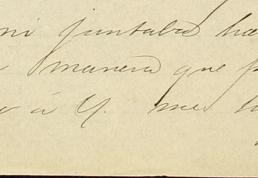 ni juntaba ha
manera que p
o á V. me